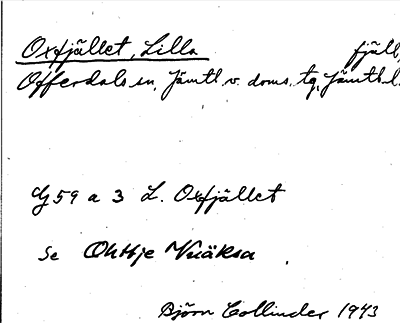 Oxfjället, Lilla fjäll,
Offerdals sn, Jämtl. v. doms. tg, Jämtl. l.
Gj 59 a 3 L. Oxfjället
Se Ohttje Vuäksa
Björn Collinder 1943